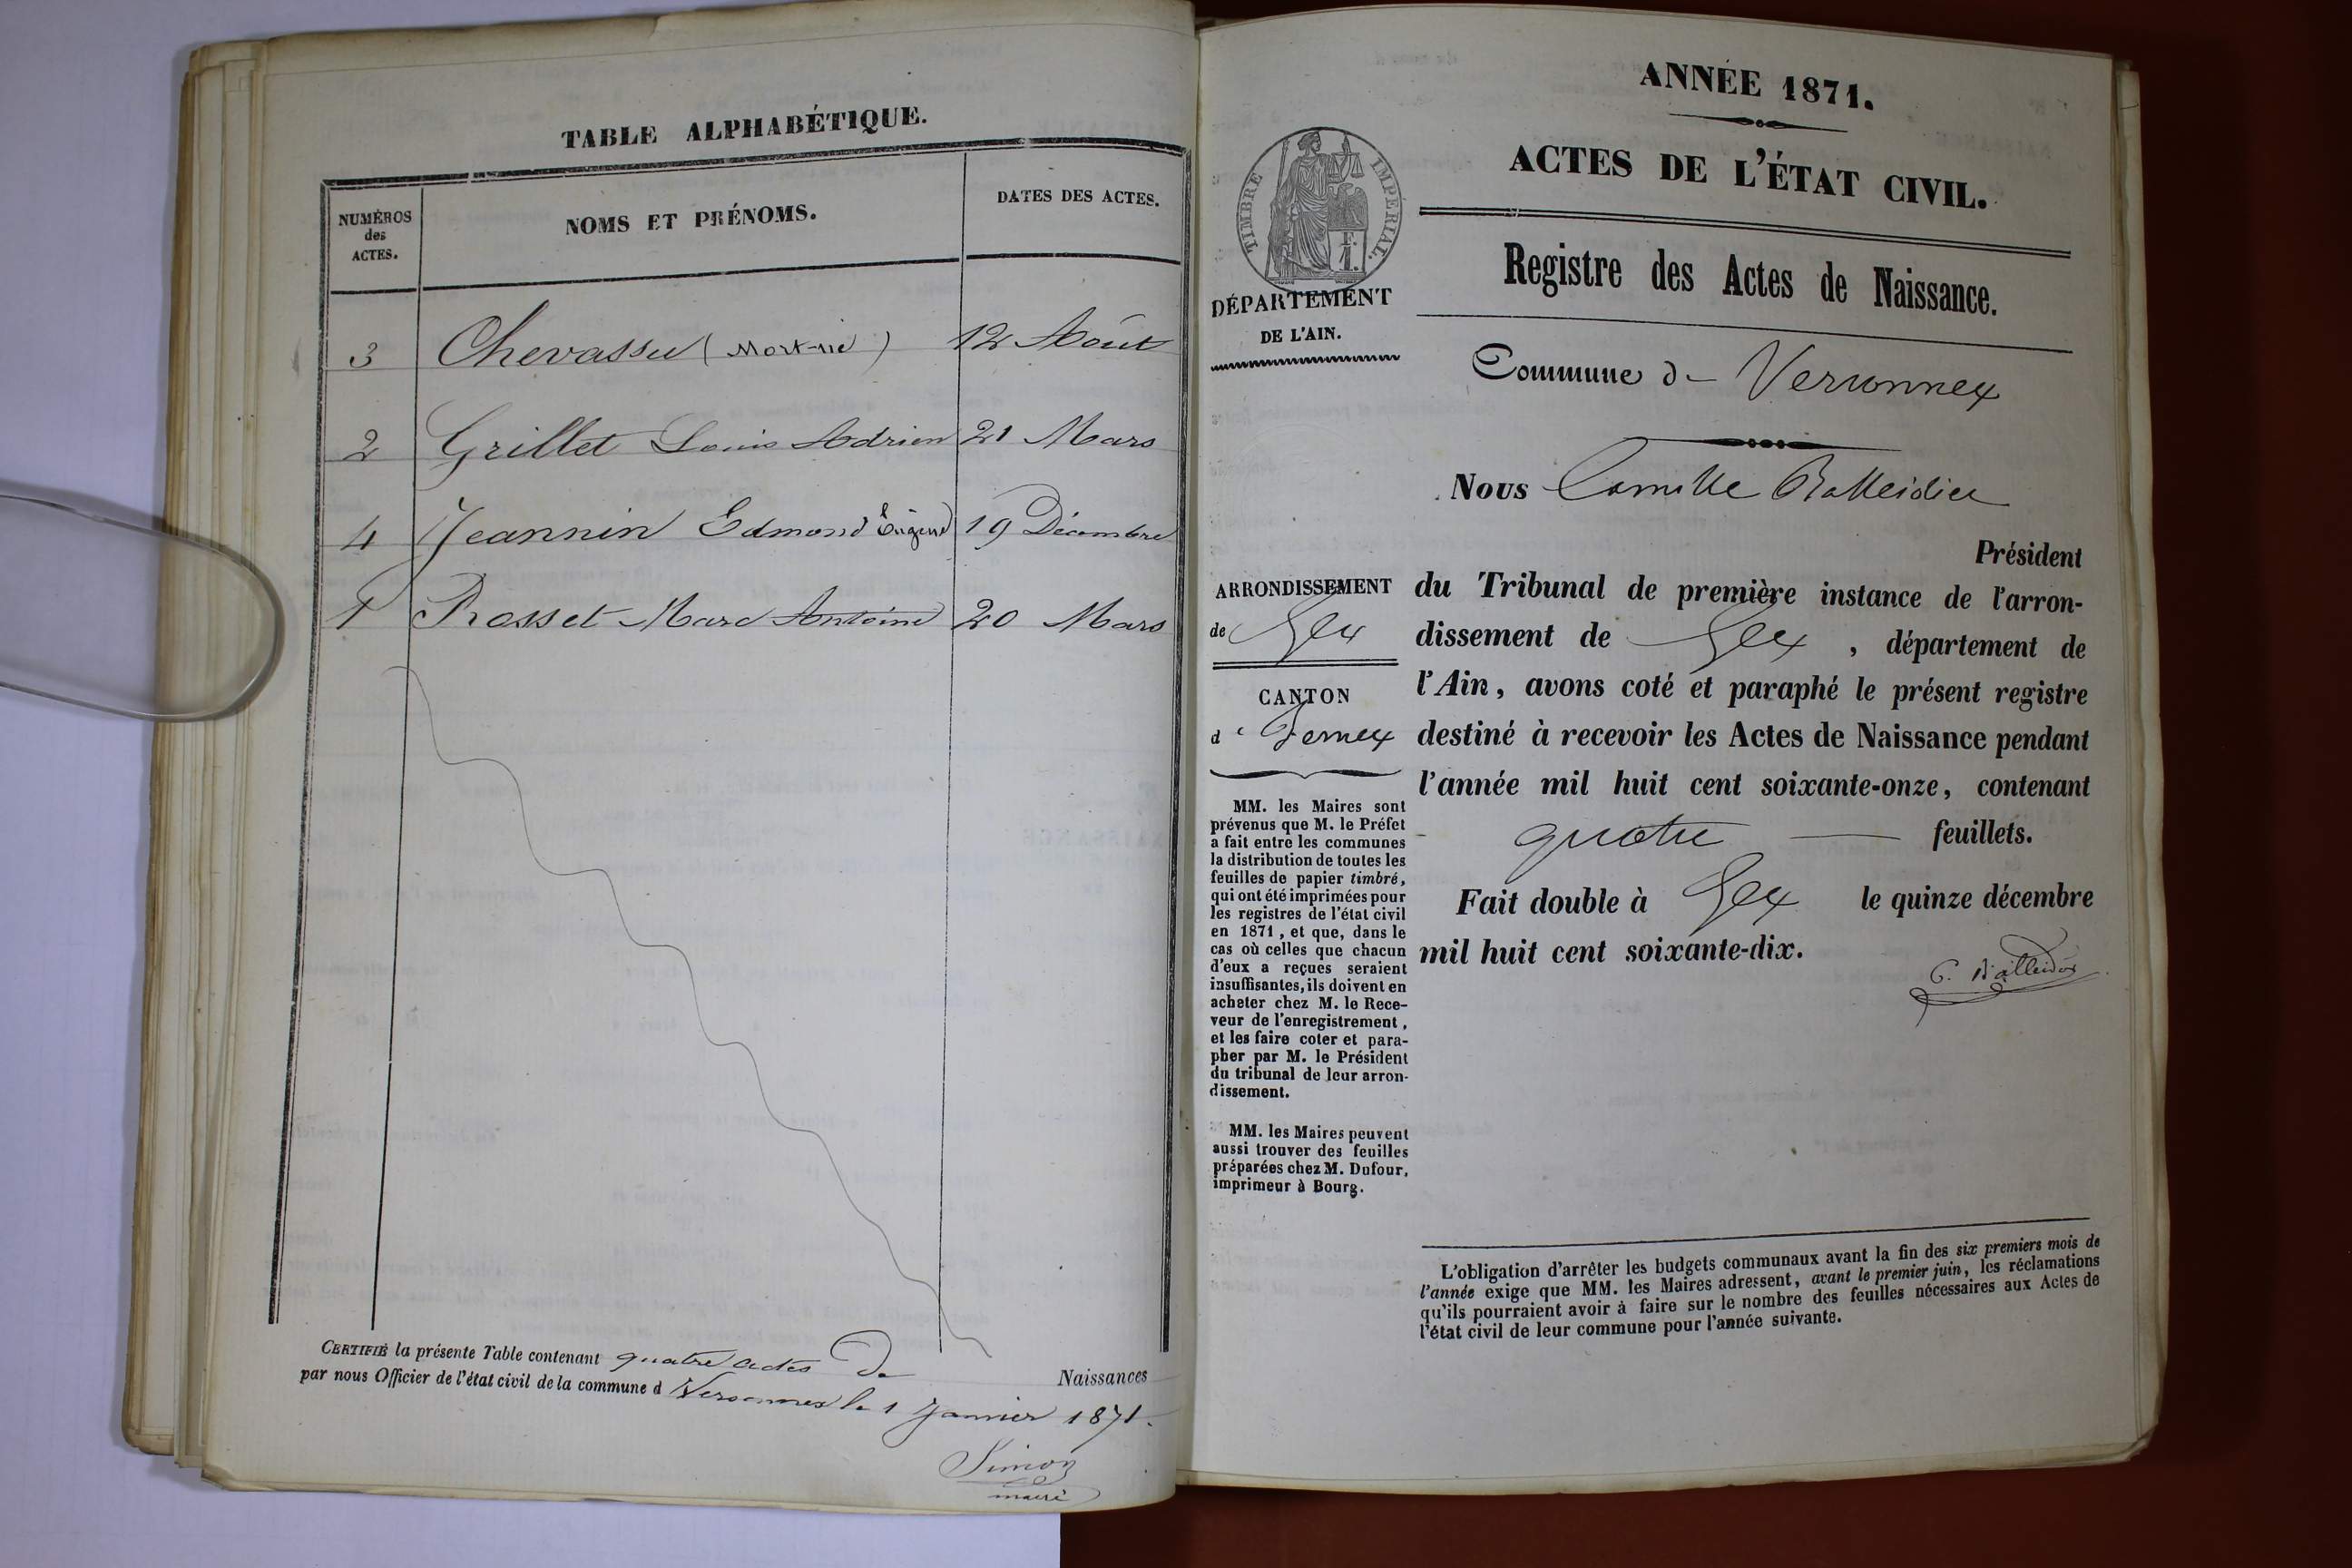 TABLE ALPHABÉTIQUE.
NUMÉROS
des
ACTES.
NOMS ET PRÉNOMS.
DATES DES ACTES.
3 Chevassu (Mort-né) 12 Août
2 Grillet Louis Adrien 21 Mars
4 Jeannin Edmond Eugène 19 Décembre
1 Rosset Marc Antoine 20 Mars
CERTIFIÉ la présente Table contenant quatre actes De Naissances
par nous Officier de l'état civil de la commune d Versonnex le 1 Janvier 1871.
Simon
maire
ANNÉE 1871.
ACTES DE L'ÉTAT CIVIL.
Registre des Actes de Naissance.
TIMBRE IMPÉRIAL.
F.
1.
DÉPARTEMENT
DE L'AIN.
ARRONDISSEMENT
de Gex
CANTON
d e Ferney
MM. les Maires sont
prévenus que M. le Préfet
a fait entre les communes
la distribution de toutes les
feuilles de papier timbré,
qui ont été imprimées pour
les registres de l'état civil
en 1871, et que, dans le
cas où celles que chacun
d'eux a reçues seraient
insuffisantes, ils doivent en
acheter chez M. le Rece-
veur de l'enregistrement,
et les faire coter et para-
pher par M. le Président
du tribunal de leur arron-
dissement.
MM. les Maires peuvent
aussi trouver des feuilles
préparées chez M. Dufour,
imprimeur à Bourg.
Commune de Versonnex
Nous Camille Balleidier
Président
du Tribunal de première instance de l'arron-
dissement de Gex, département de
l'Ain, avons coté et paraphé le présent registre
destiné à recevoir les Actes de Naissance pendant
l'année mil huit cent soixante-onze, contenant
quatre feuillets.
Fait double à Gex le quinze décembre
mil huit cent soixante-dix.
C. Balleidier
L'obligation d'arrêter les budgets communaux avant la fin des six premiers mois de
l'année exige que MM. les Maires adressent, avant le premier juin, les réclamations
qu'ils pourraient avoir à faire sur le nombre des feuilles nécessaires aux Actes de
l'état civil de leur commune pour l'année suivante.